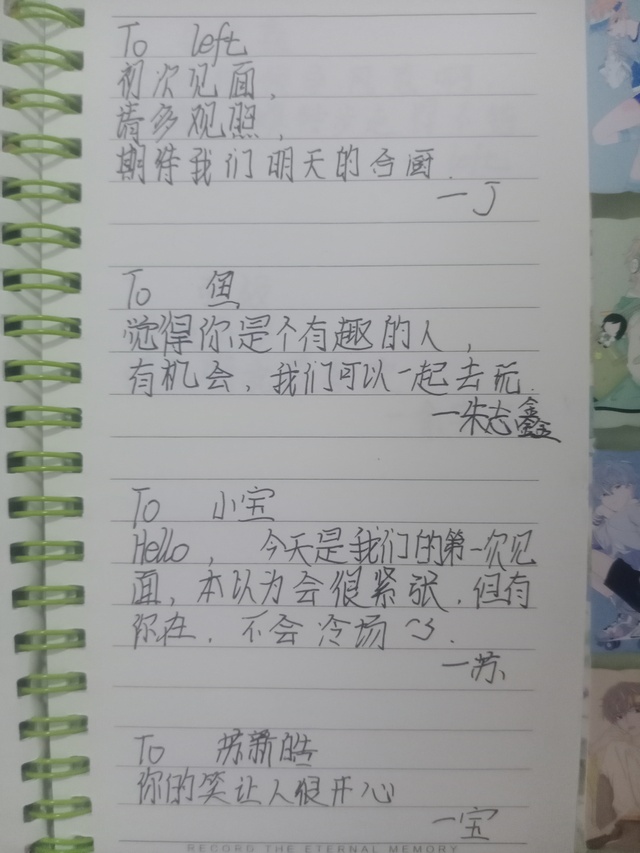 To left
初次见面，
请多观照，
期待我们明天的合厨.
一J
To 俱
觉得你是个有趣的人，
有机会，我们可以一起去玩.
一朱志鑫
To 小宝
Hello， 今天是我们的第一次见
面，本以为会很紧张，但有
你在，不会冷场~3.
一苏
To 苏新皓
你的笑让人很开心
一宝
RECORD THE ETERNAL MEMORY